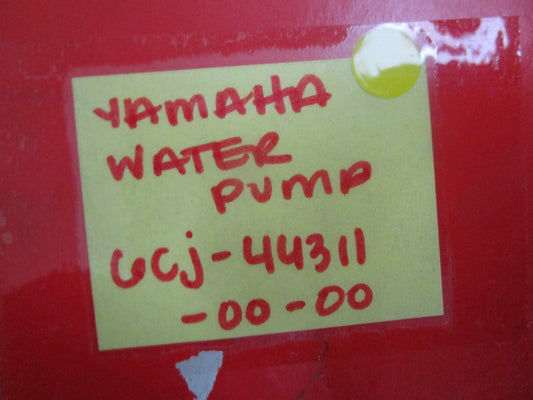 YAMAHA
WATER
PUMP
6Cj-44311
-00-00